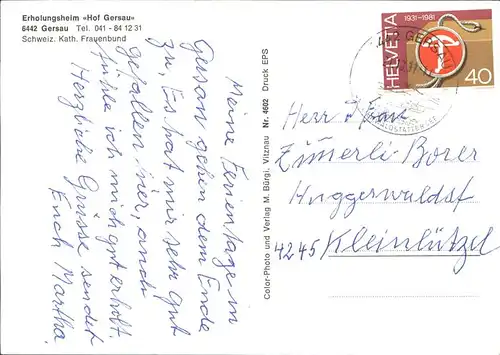 Erholungsheim «Hof Gersau»
6442 Gersau Tel. 041 - 84 12 31
Schweiz. Kath. Frauenbund
Meine Ferientage in
Gersau gehen dem Ende
zu, Es hat mir sehr gut
gefallen hier, auch
fühle ich mich gut erholt.
Herzliebe Grüsse sendet
Euch Martha.
Color-Photo und Verlag M. Bürgi, Vitznau Nr. 4602 Druck EPS
HELVETIA
1931-1981
40
GERSAU
Herr u Frau
Zümerli-Borer
Huggerwaldst
4245 Kleinlützel